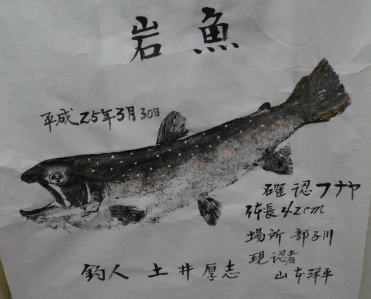 岩魚
平成25年3月30日
確認フナヤ
体長42cm
場所 部子川
現認者
山本洋平
釣人 土井厚志